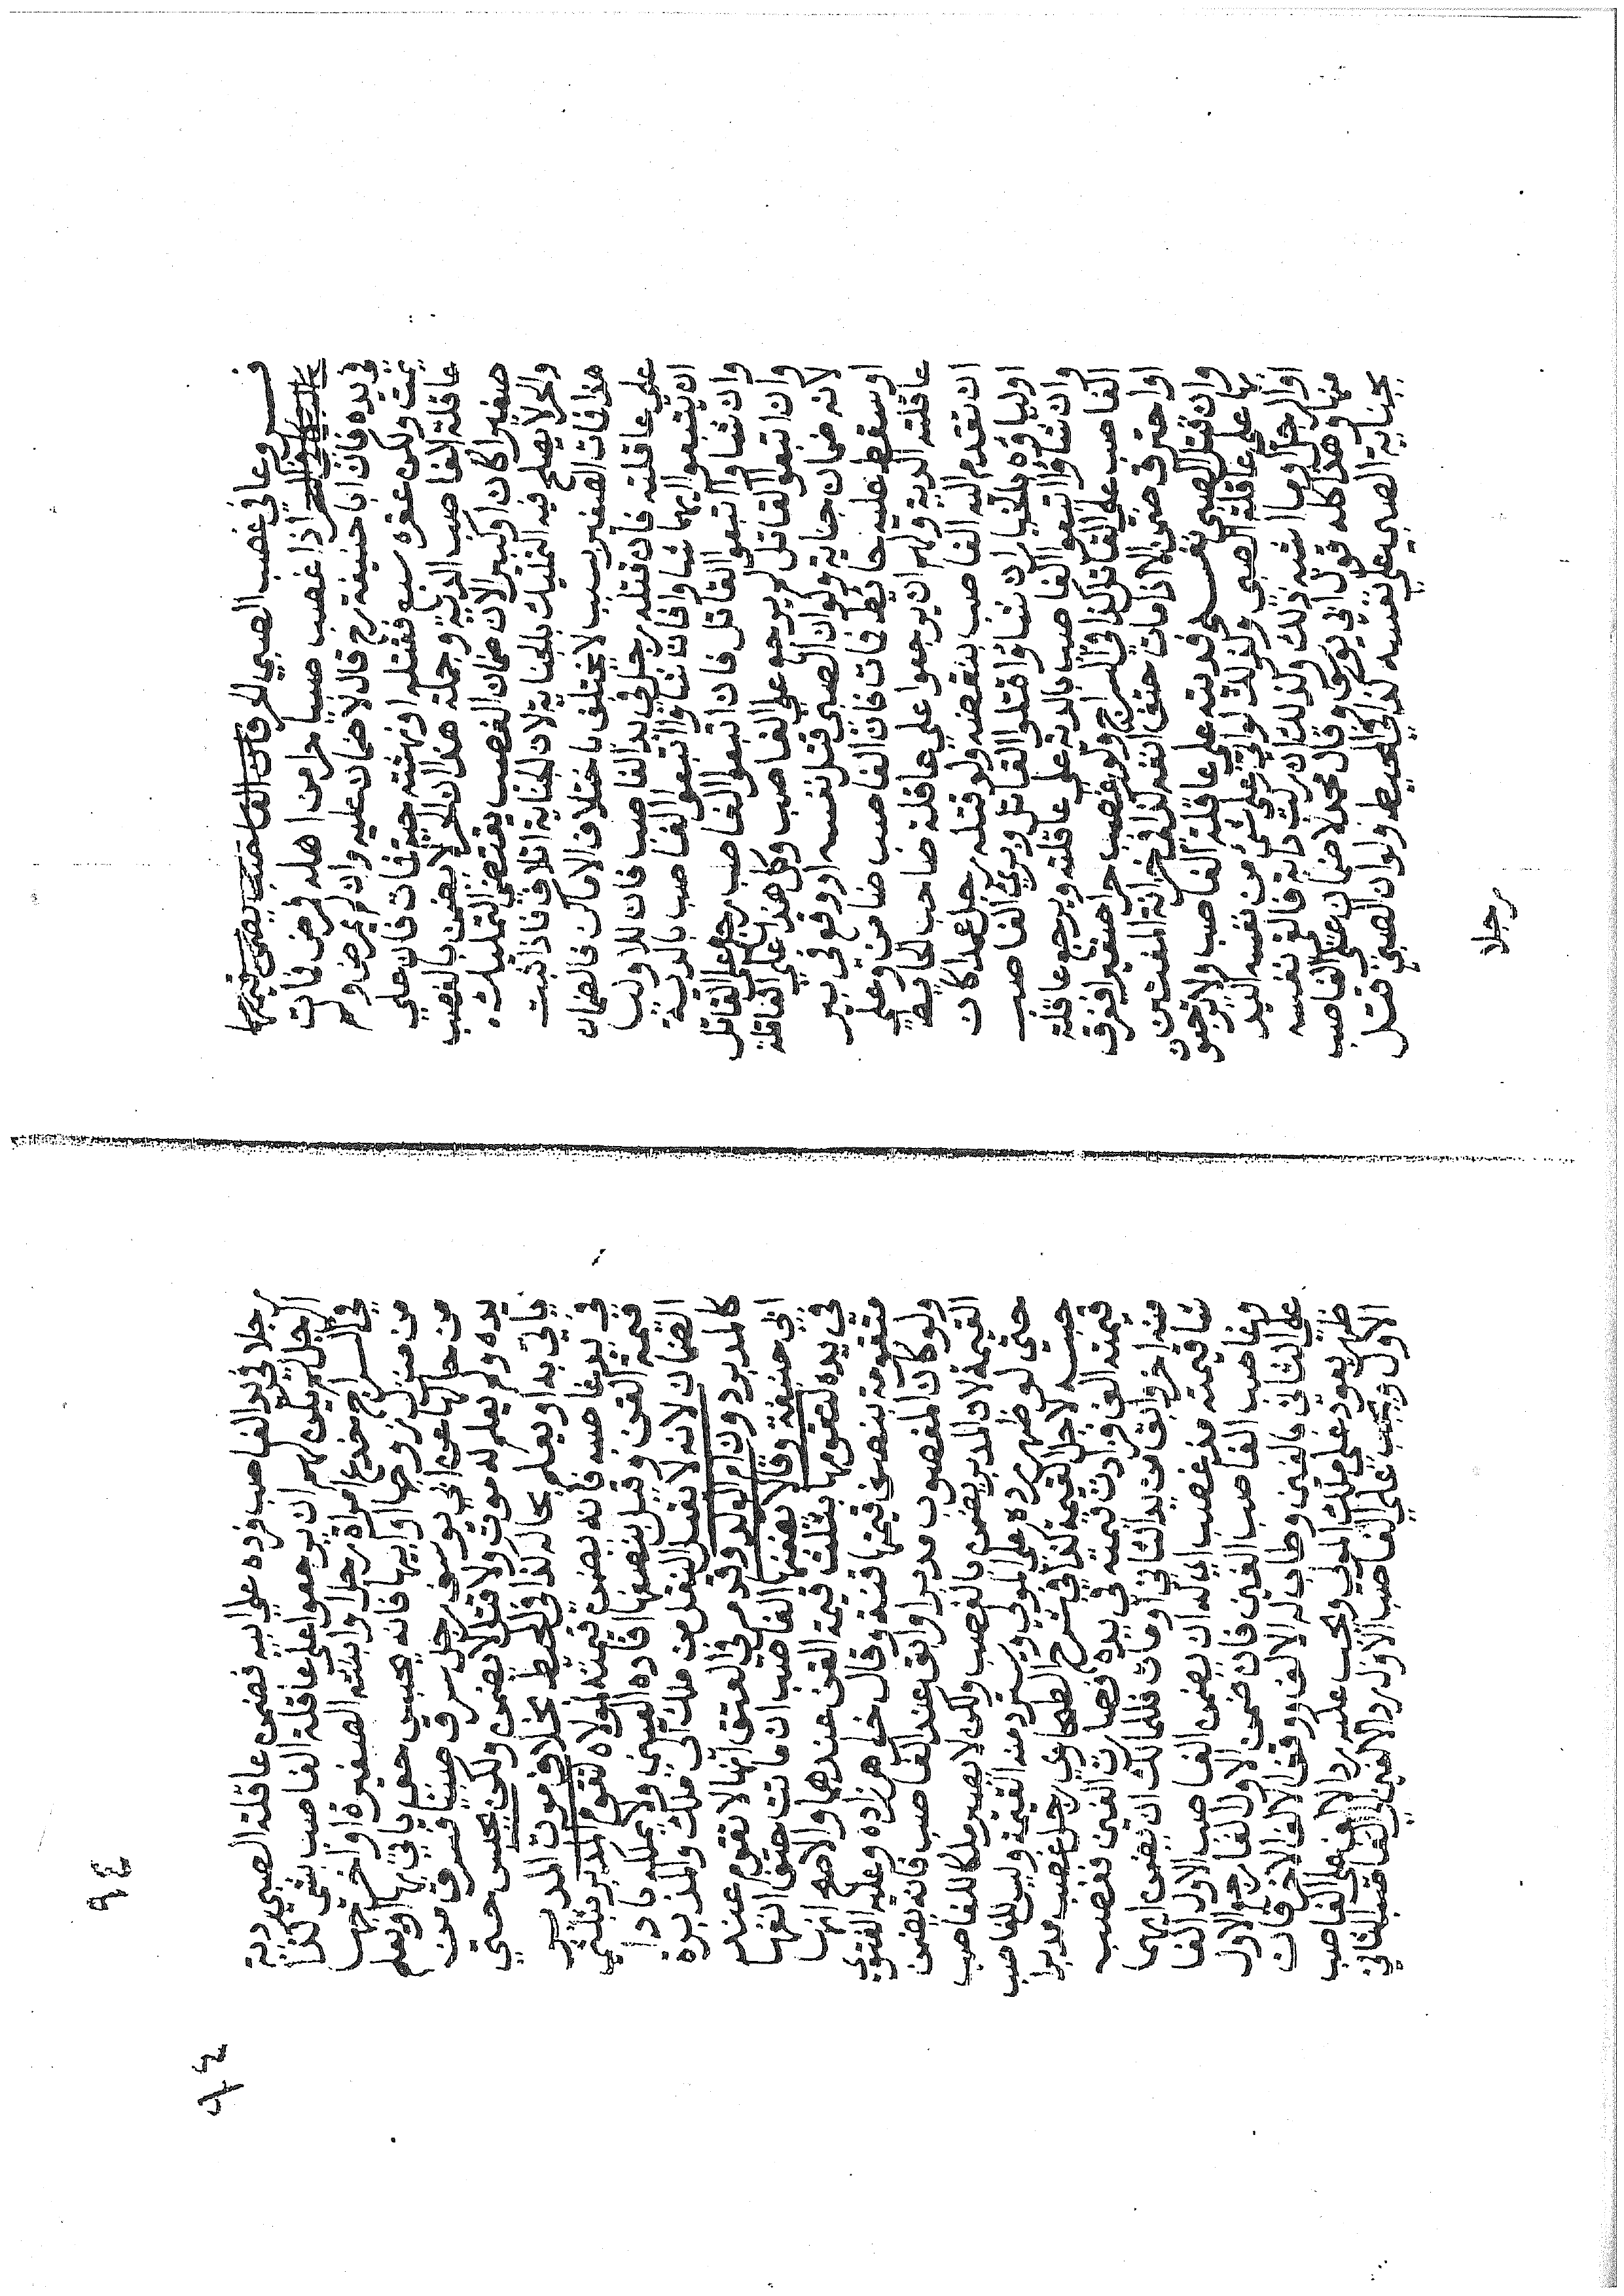 فروع في غصب الصبي الحر فان الغاصب يضمن
اذا غصب صبيا حرا من اهله فمرض فمات
في يده فان ابا حنيفة رح قال لا ضمان عليه وان لم يمرض ولم
يمت ولكن عقره سبع فقتله او نهشته حية فمات فان على
عاقلة الغاصب الدية وجملة هذا ان الحر لا يضمن بالغصب
صغيرا كان او كبيرا لان ضمان الغصب يقتضي التمليك
والحر لا يصلح فيه التمليك بالجناية لان الجناية اتلاف فاذا ثبت
هذا فمات الصغير بسبب لا يختلف باختلاف الاماكن فالضمان
على عاقلته فان قتله رجل في يد الغاصب فان للاوليا
ان يتبعوا ايهما شاوا فان شاوا اتبعوا الغاصب بالدية
وان شاوا اتبعوا القاتل فان اتبعوا الغاصب رجع على القاتل
وان اتبعوا القاتل لم يرجع على الغاصب وكل هذا على العاقلة
لانه ضمان جناية ولو ان الصبي قتل نفسه او وقع في بير
او سقط عليه حايط فمات فان الغاصب ضامن وعلى
عاقلته الدية ولهم ان يرجعوا على عاقلة صاحب الحايط
ان تقدم اليه الغاصب بنقضه ولو قتله رجل عمدا كان
اولياؤه بالخيار ان شاؤا قتلوا القاتل وبرئ الغاصب
وان شاؤا اتبعوا الغاصب بالدية على عاقلته ويرجع عاقلة
الغاصب على القاتل كذا في السراج ولو غصب حرا صغيرا فغرق
او احترق ضمن الا اذا مات حتف انفه كذا في خزانة المفتين
وان قتل الصبي نفسه فديته على عاقلة الغاصب ولا يرجعون
بها على عاقلة الصبي وكذلك لو اتى على شئ من نفسه اليد
او الرجل وما اشبه ذلك وكذلك ان ركب دابة فالقى نفسه
منها وهذا كله قول ابي يوسف وقال محمد لا ضمان على الغاصب
بجناية الصبي على نفسه كذا في المحيط ولو ان الصبي قتل
رجلا
رجلا في يد الغاصب فرده على ابيه فضمن عاقلة الصبي دية
الرجل لم يكن لهم ان يرجعوا على عاقلة الغاصب بشئ كذا
في السراج خدع امراة رجل او ابنته الصغيرة او اخرجها
من منزل زوجها او ابيها فانه يحبس حتى ياتي بها او يعلم
من حالها عن ابي يوسف رجل سرق صبيا فسرق من
يده ولم يعلم له موت ولا قتل لا يضمن ولكن يحبس حتى
ياتي به او يعلم بحاله كذا في المحيط بخلاف موت المدبر
في يد غاصبه فانه يضمن قيمته لمولاه لتقوم المدبر بثلثي
قيمة القن وقيل بنصفها افاده العيني ولا يملكه بادا
الضمان لانه لا يقبل النقل من ملك الى ملك والمدبرة
كالمدبر دون ام الولد وقدم في العتق انها لا تتقوم عند
ابي حنيفة وقالا يضمنها الغاصب ان ماتت حتف انفها
في يده لتقومها بثلث قيمة القن عندهما والاصح انها
متقومة بنصف قيمتها قنة وقال خواهر زاده وعليه الفتوى
ولو كان المغصوب مدبرا وابق عند الغاصب فانه يضمن
القيمة لان المدبر يضمن بالغصب ولكن لا يصير ملكا للغاصب
حتى لو ظهر رده على المولى ويسترد منه القيمة وليس للغاصب
حبسه لاجل القيمة كذا في شرح الطحاوي رجل غصب مدبرا
قيمته الف فزادت قيمته في يده فصارت الفين فغصب
منه اخر وابق من يد الثاني او مات فللمالك ان يضمن ايهما
شا قيمته مذ غصب الا انه ان يضمن الغاصب الاول الفا
وغاصب الغاصب الفين فان ضمن الاول الفا رجع الاول
على الثاني بالفين وطاب له الالف ووقف الالف الاخر فان
ظهر يعود على ملك المولى ويجب عليه رد الالف على الغاصب
الاول ويجب على الغاصب الاول رد الالفين الى الغاصب الثاني
٩٤